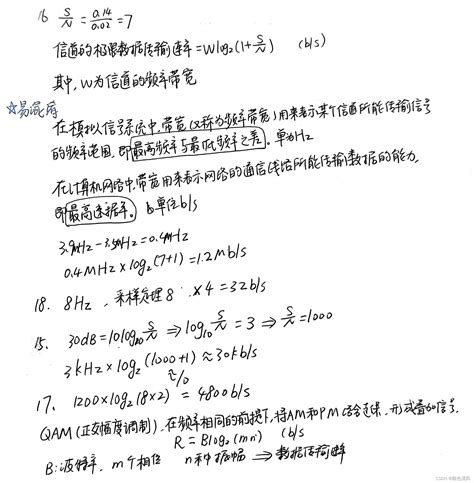 16 S/N = 0.14/0.02 = 7
信道的极限数据传输速率=Wlog₂(1+S/N) (b/s)
其中,W为信道的频率带宽
☆易混淆
在模拟信号系统中,带宽(又称为频率带宽)用来表示某个信道所能传输信号
的频率范围,即最高频率与最低频率之差。单位Hz
在计算机网络中,带宽用来表示网络的通信线路所能传输数据的能力,
即最高速率。单位b/s
3.9MHz-3.5MHz=0.4MHz
0.4MHz×log₂(7+1)=1.2Mb/s
18. 8Hz,采样定理8 ×4=32b/s
15. 30dB=10log₁₀ S/N ⇒ log₁₀ S/N = 3 ⇒ S/N=1000
3kHz×log₂(1000+1)≈30kb/s
≈10
17. 1200×log₂(8×2) = 4800b/s
QAM(正交幅度调制).在频率相同的前提下,将AM和PM结合起来,形成叠加信号.
R = Blog₂(mn) (b/s
B:波特率, m个相位 n种振幅 ⇒ 数据传输率
CSDN